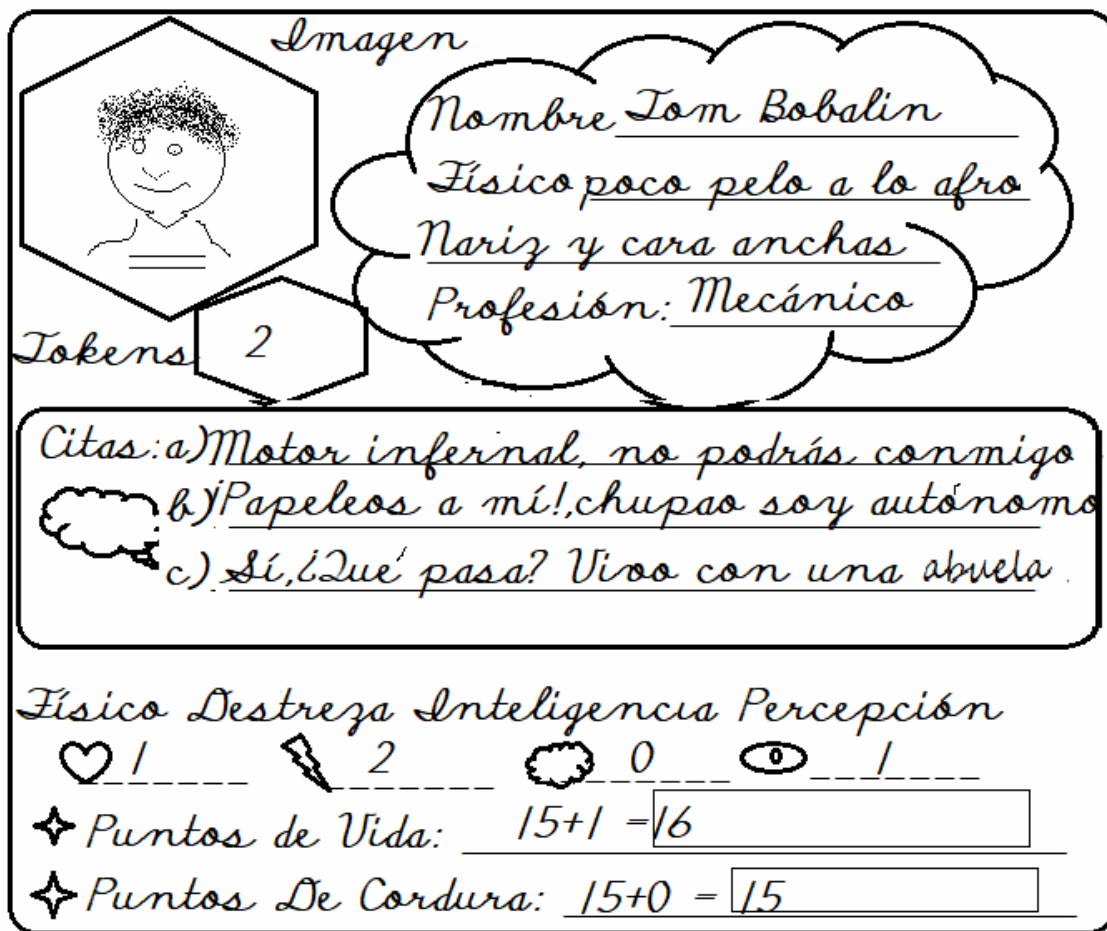 Imagen
Nombre Tom Bobalin
Físico poco pelo a lo afro
Nariz y cara anchas
Profesión: Mecánico
Tokens 2
Citas: a) Motor infernal, no podrás conmigo
b) ¡Papeleos a mí!, chupao soy autónomo
c) Sí, ¿Qué pasa? Vivo con una abuela
Físico Destreza Inteligencia Percepción
1 2 0 0 1
Puntos de Vida: 15+1 = 16
Puntos De Cordura: 15+0 = 15